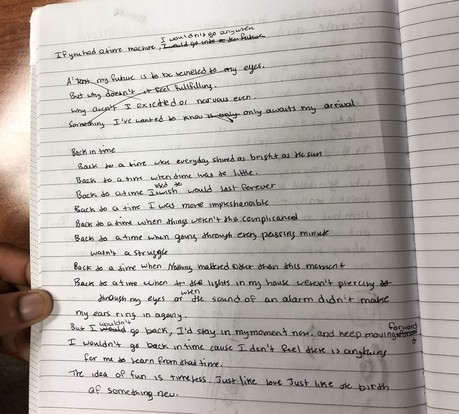 I wouldn't go anywhere
If you had a time machine, I would go into the future
At last my future is to be reveled to my eyes.
But why doesn't it feel fullfilling.
Why aren't I excited or nervous even.
Something I've wanted to know only awaits my arrival
Back in time
Back to a time were everyday shined as bright as the sun
Back to a time when time was to little.
used to
Back to a time I wish would last forever
Back to a time I was more impreshenable
Back to a time when things weren't this complicated
Back to a time when going through every passing minute
wasn't a struggle
Back to a time when Nothing mattered other than this moment
Back to a time when the lights in my house weren't piercing
through my eyes or when the sound of an alarm didn't make
my ears ring in agony.
wouldn't forward
But I would go back, I'd stay in my moment now, and keep moving
I wouldn't go back in time cause I don't feel there is anything
for me to learn from that time.
The idea of fun is timeless. Just like love Just like the birth
of something new.